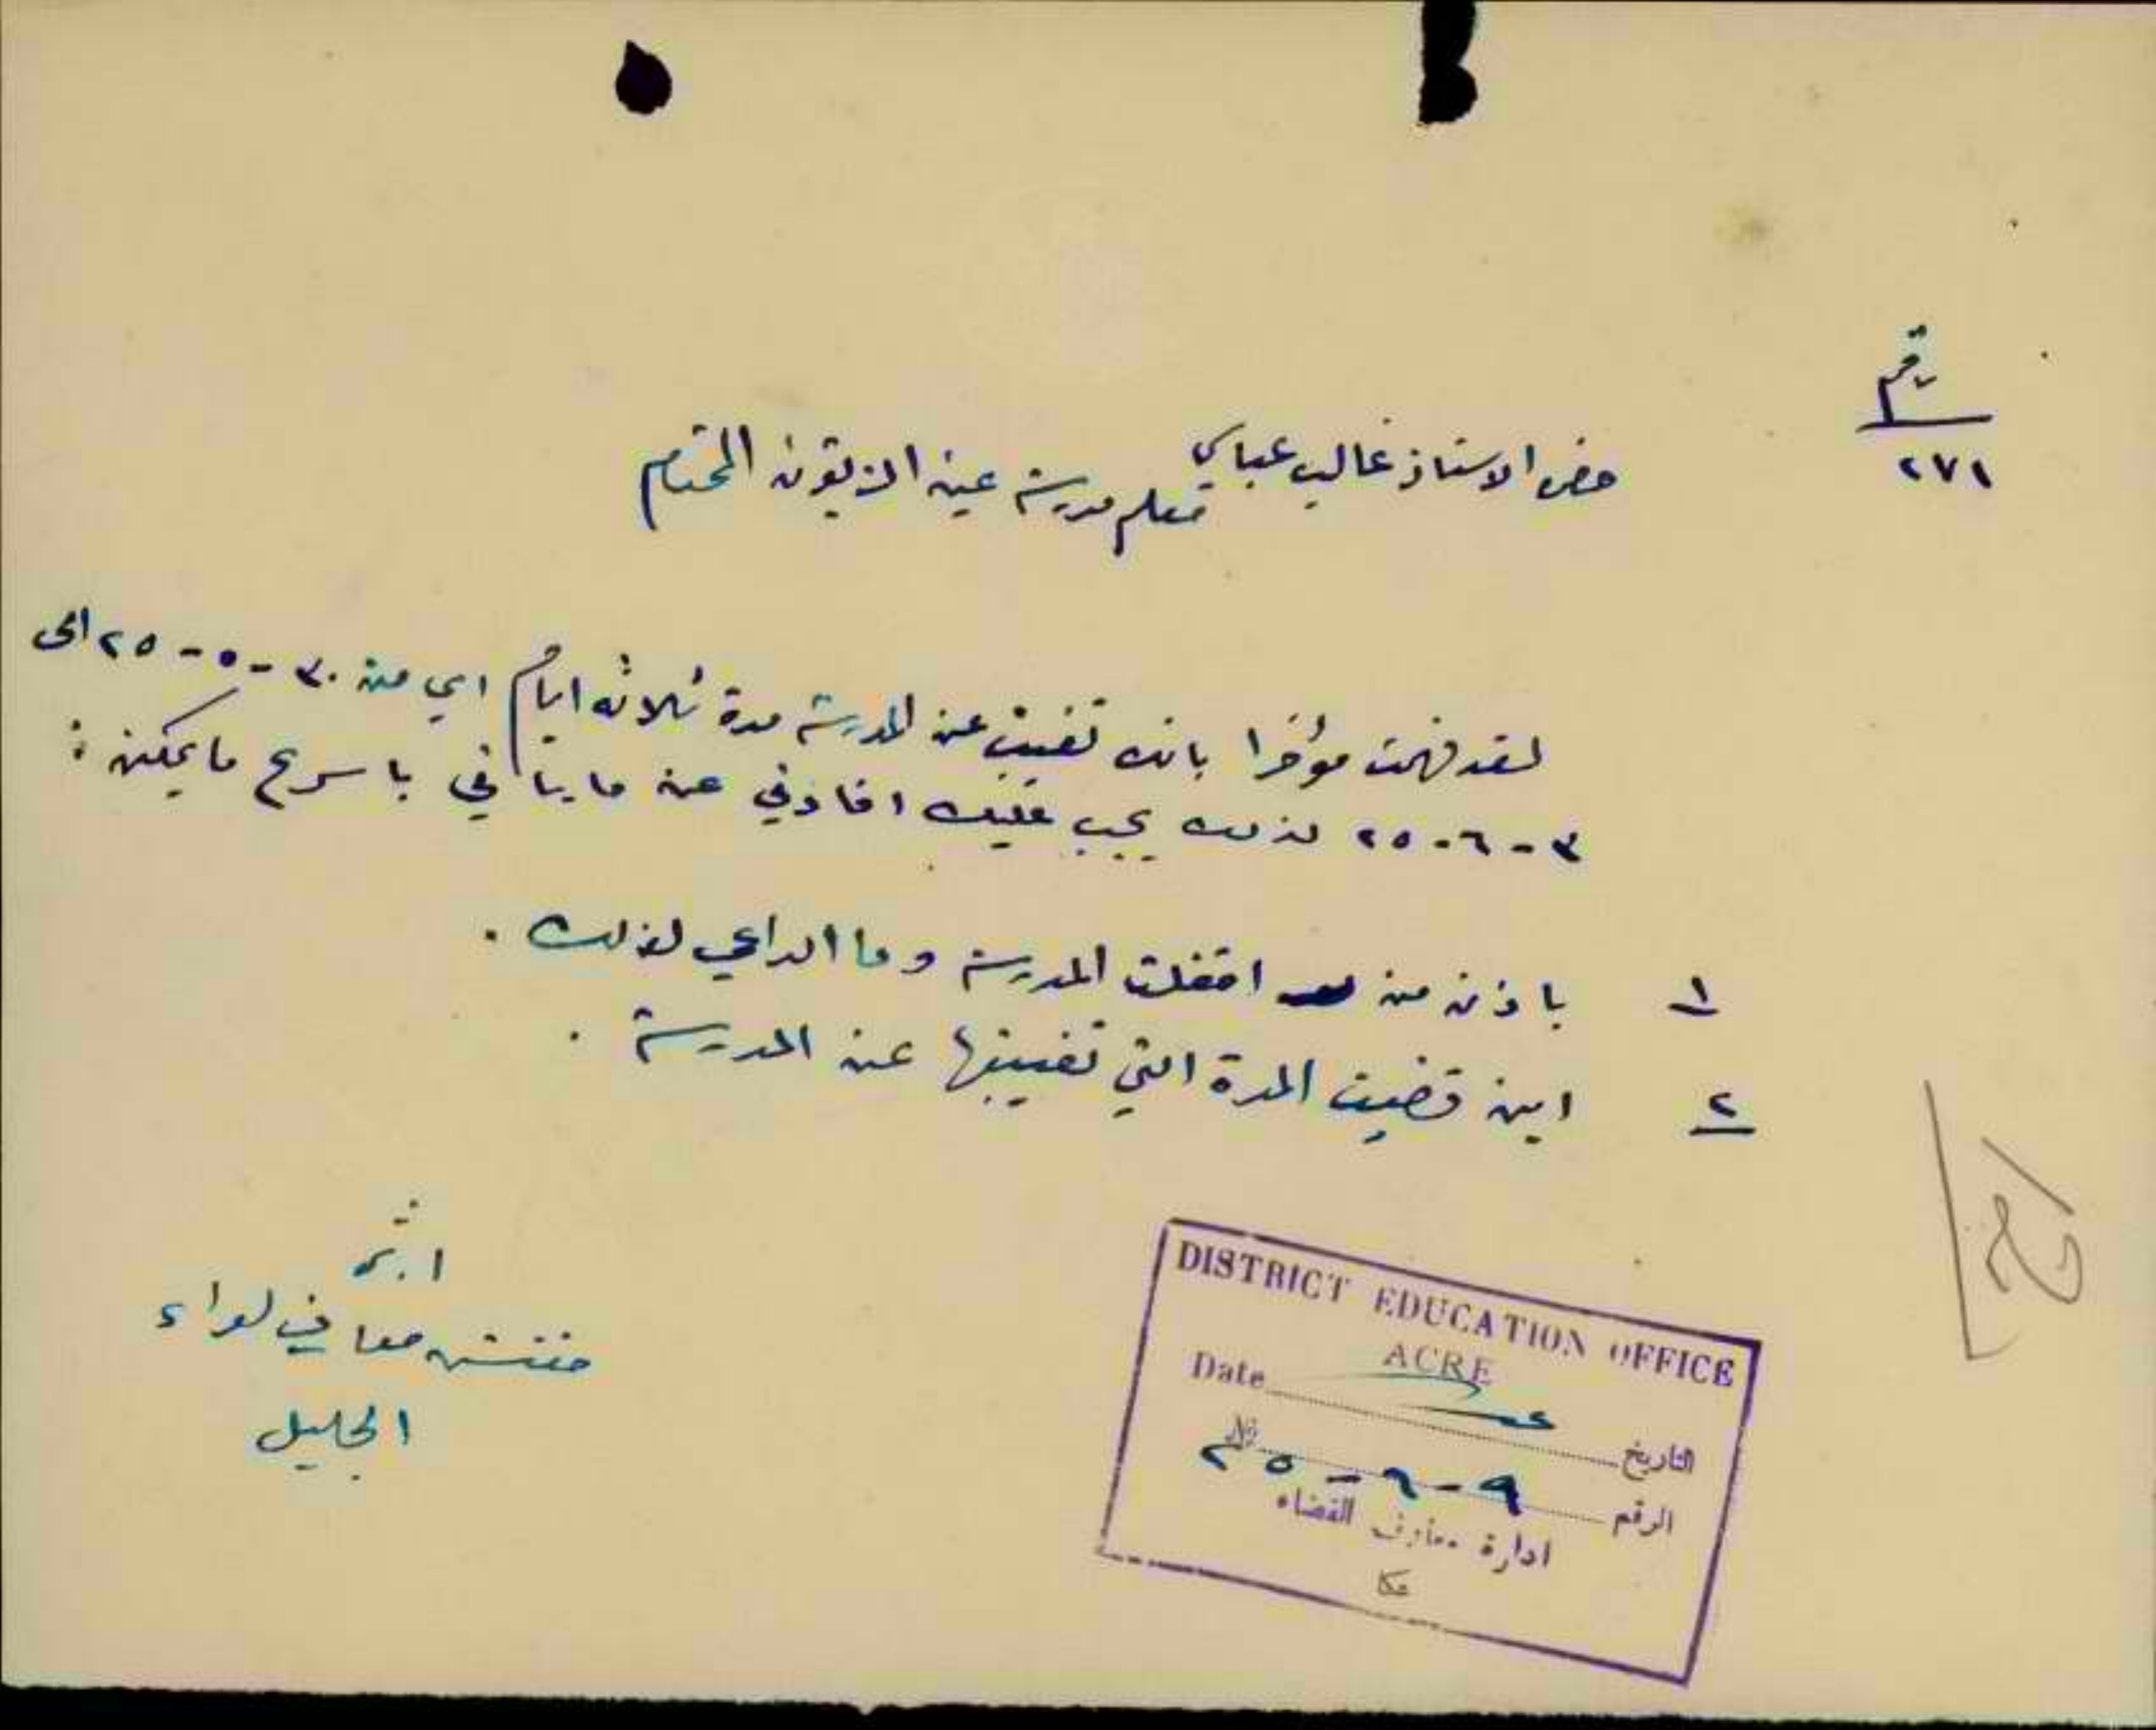 رقم
٢٧١
حضرة الاستاذ غالب عباسي
معلم مدرسة عين الزيتون المحترم
لقد فهمت مؤخرا بانك تغيبت عن المدرسة مدة ثلاثه ايام اي من ٣٠ - ٥ - ٢٥ الى
٣ - ٦ - ٢٥ لذلك يجب عليك افادتي عن ما يأتي باسرع ما يمكن :
١ باذن من اقفلت المدرسة وما الداعي لذلك .
٢ اين قضيت المدة التي تغيبتها عن المدرسة .
مفتش معارف لواء
الجليل
DISTRICT EDUCATION OFFICE
ACRE
Date التاريخ
№ ٩ - ٦ - ٢٥ الرقم
ادارة معارف القضاء
عكا